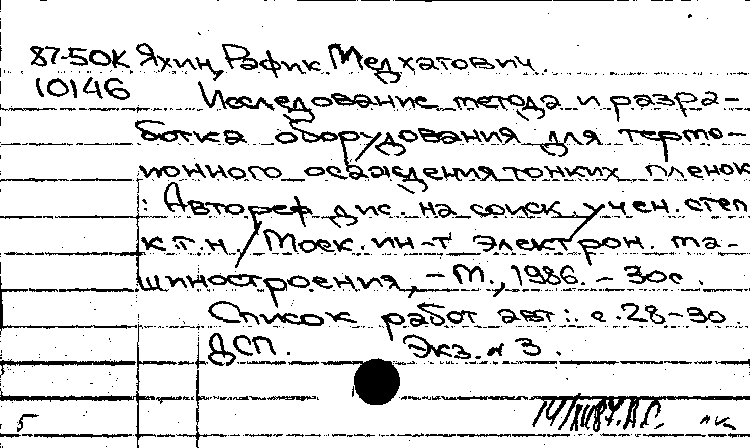 87-50К Яхин, Рафик Медхатович.
10146 Исследование метода и разра-
ботка оборудования для термо-
ионного осаждения тонких пленок
: Автореф дис. на соиск. учен. степ
к.т.н. / Моск. ин-т электрон. ма-
шиностроения, - М., 1986. - 30с.
Список работ авт.: с. 28-30.
ДСП. Экз. № 3.
5